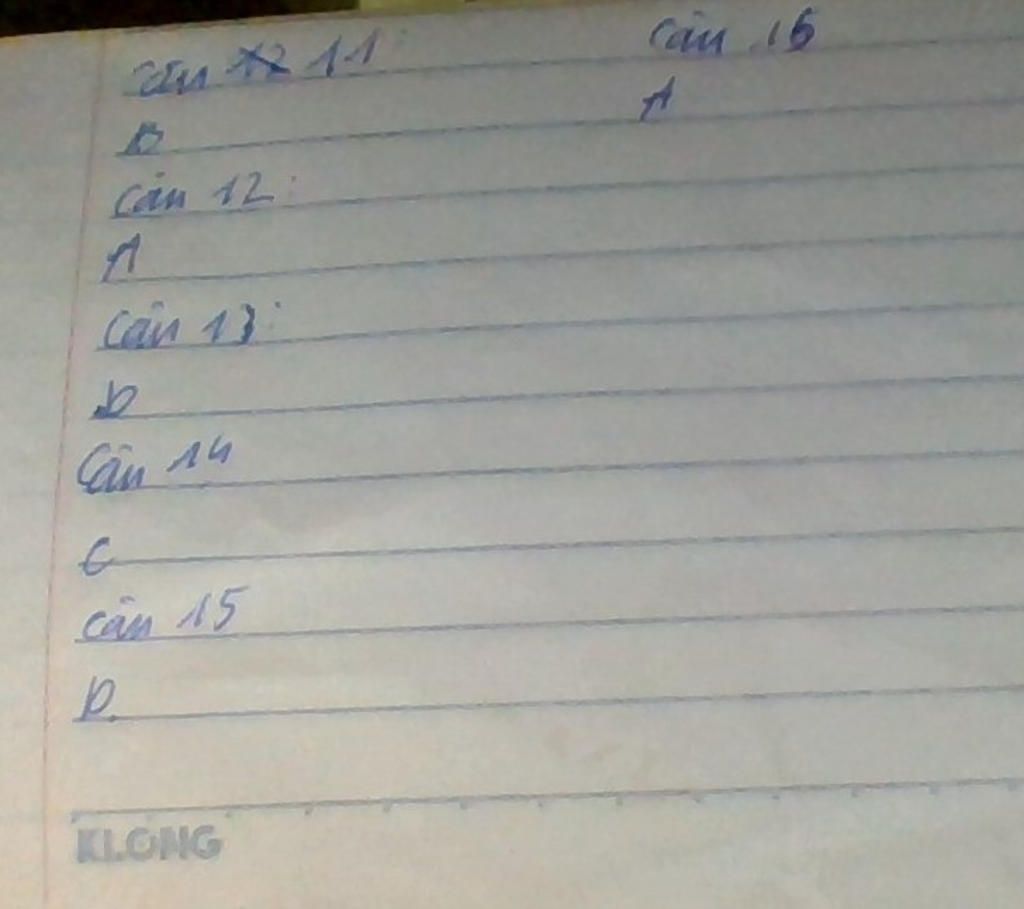 Câu 11:
B
Câu 12:
A
Câu 13:
D
Câu 14
C
Câu 15
D.
Câu 16
A
KLONG